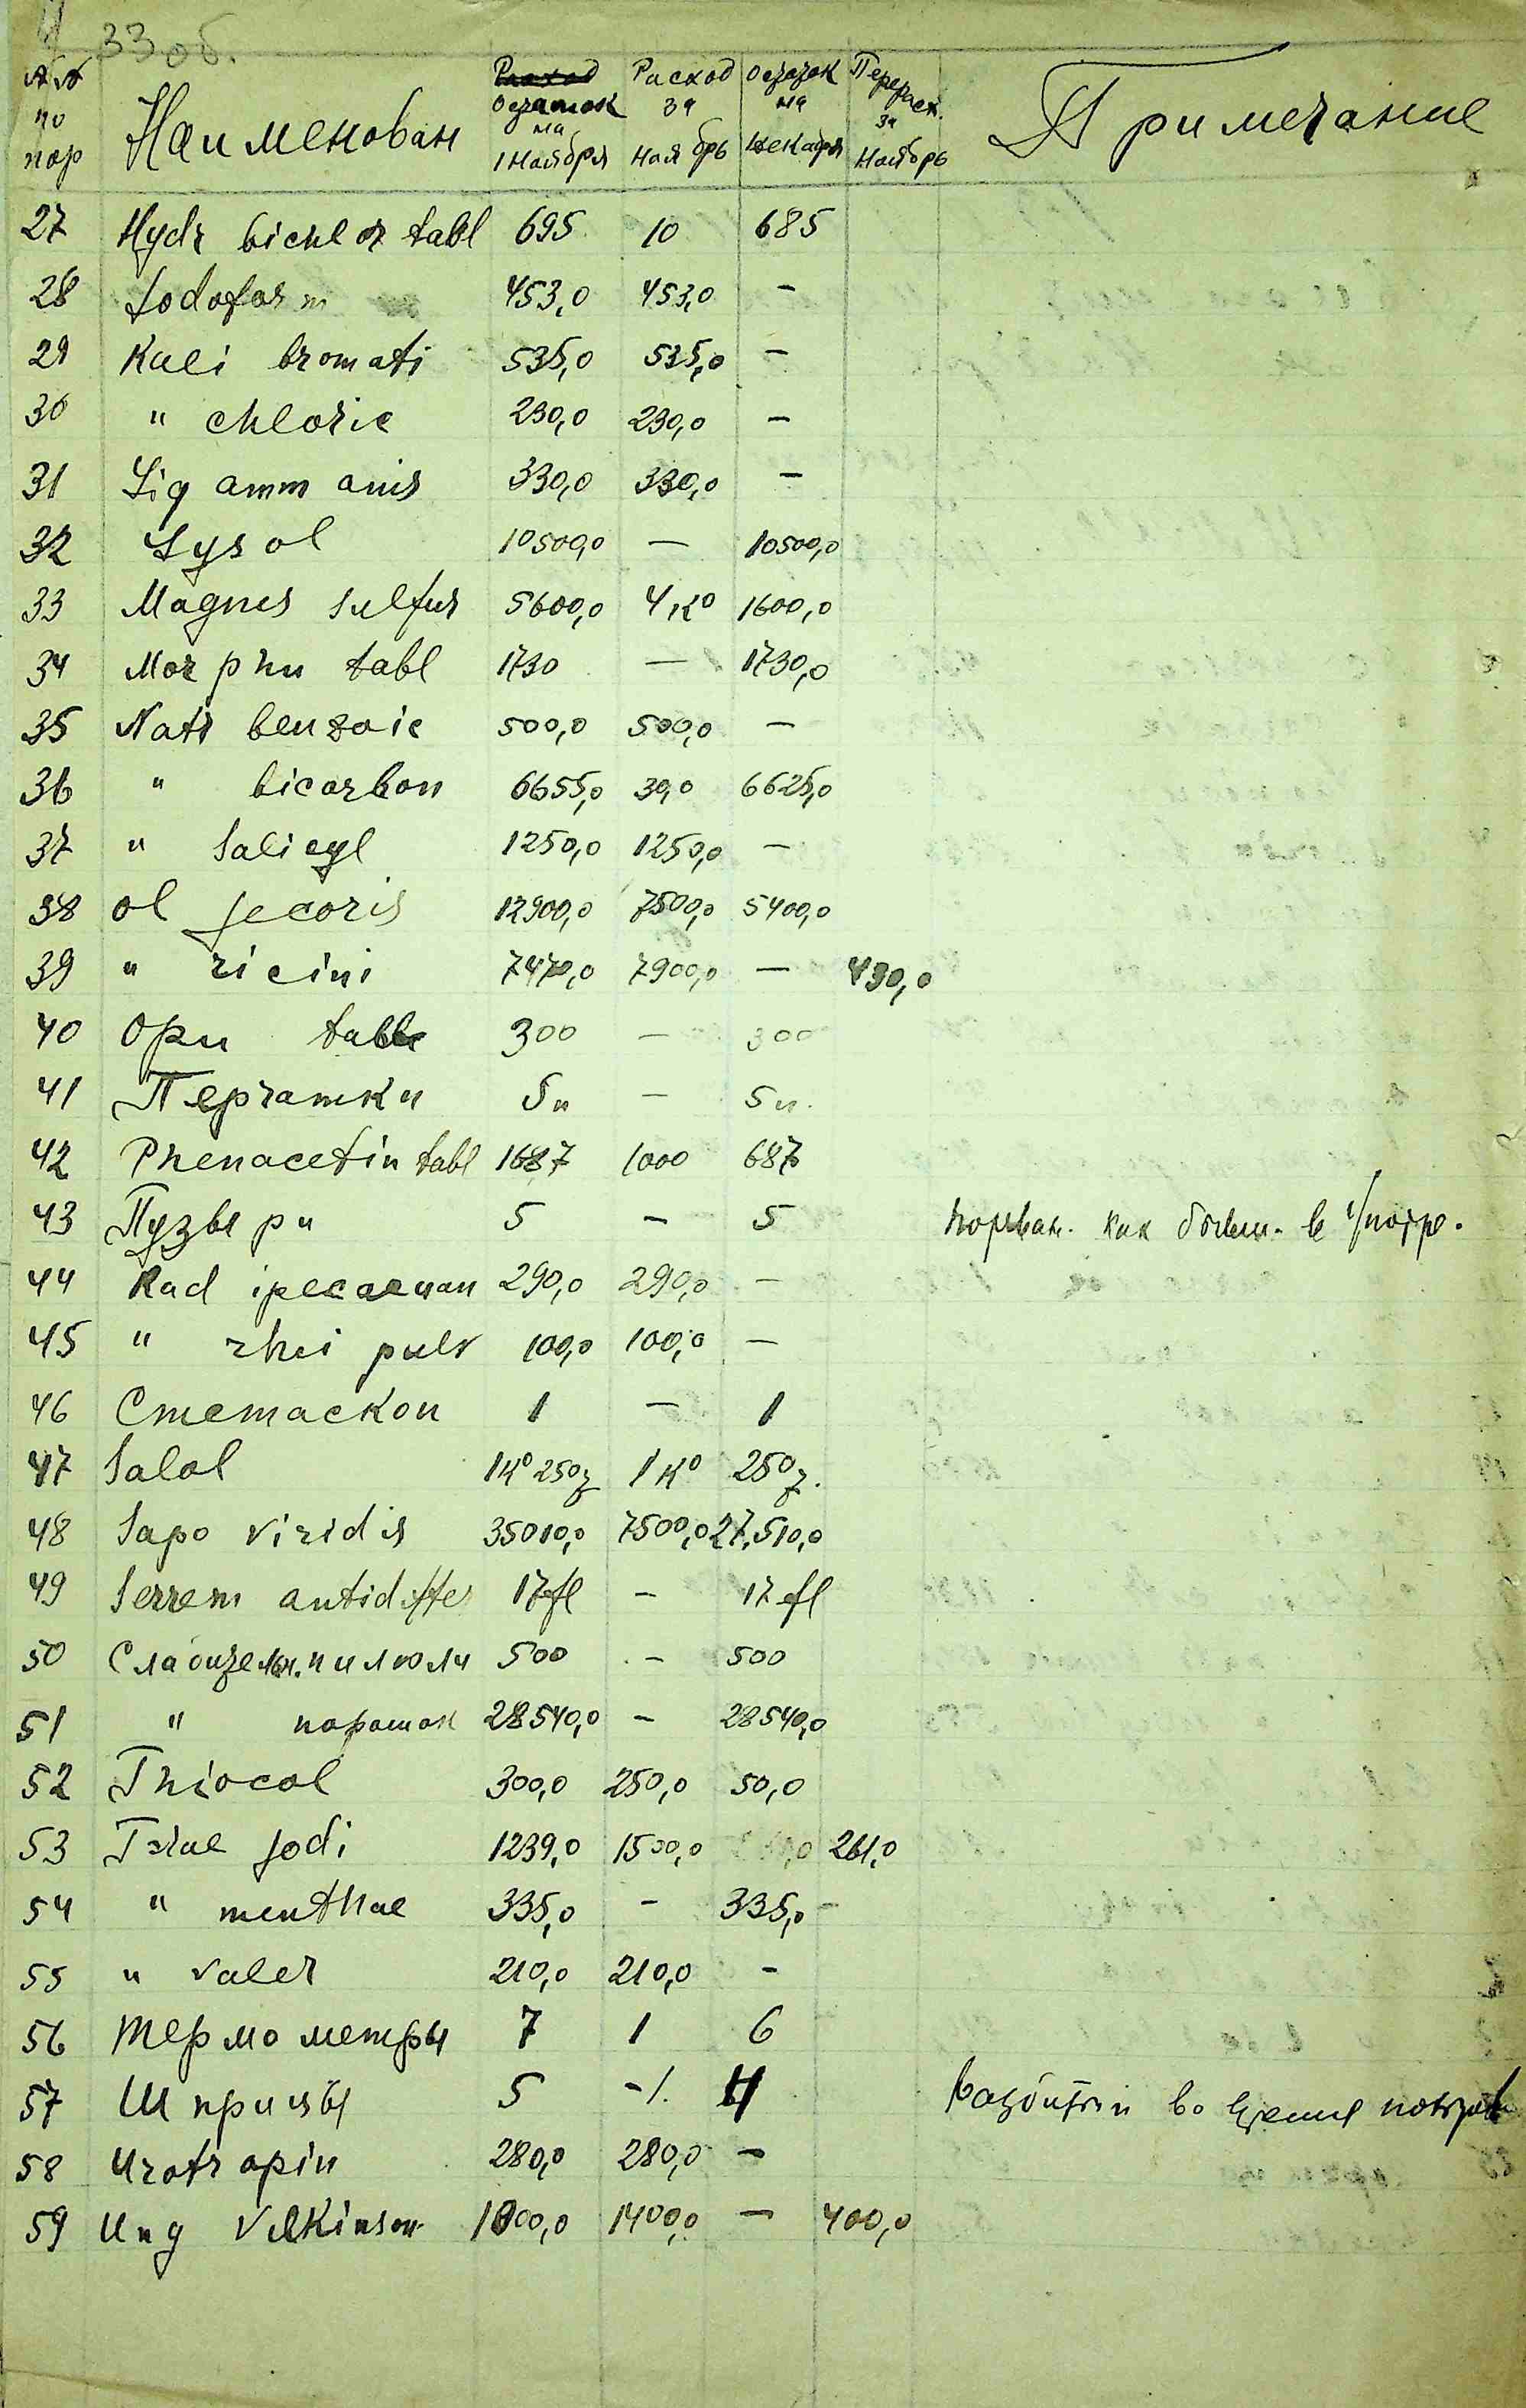 33 об.
№№ по пор Наименован Расход Остаток на 1 Ноября Расход за Ноябрь Остаток на декабря Перерасх. за Ноябрь Примечание
27 Hydr bichlor tabl 695 10 685
28 Jodoform 453,0 453,0 –
29 Kali bromati 535,0 535,0 –
30 " chloric 230,0 230,0 –
31 Liq amm anis 330,0 330,0 –
32 Lysol 10500,0 — 10500,0
33 Magnes sulfur 5600,0 4 К⁰ 1600,0
34 Morphii tabl 1730 — 1730,0
35 Natr benzoic 500,0 500,0 –
36 " bicarbon 6655,0 30,0 6625,0
37 " Salicyl 1250,0 1250,0 –
38 Ol jecoris 12900,0 7500,0 5400,0
39 " ricini 7470,0 7900,0 — 430,0
40 Opii tabl 300 — 300
41 Перчатки 5 п – 5 п.
42 Phenacetin tabl 1687 1000 687
43 Пузыри 5 – 5 как бывш. в употре.
44 Rad ipecacuan 290,0 290,0 –
45 " rhei pulv 100,0 100,0 –
46 Стетаскоп 1 – 1
47 Salol 1К⁰ 250 г 1 К⁰ 250 г.
48 Sapo viridis 35010,0 7500,0 27,510,0
49 Serrem antidifter 17 fl – 17 fl
50 Слабительн. пилюли 500 – 500
51 " порошок 28540,0 – 28540,0
52 Thiocol 300,0 250,0 50,0
53 T-rae jodi 1239,0 1500,0 261,0
54 " menthae 335,0 – 335,0 –
55 " valer 210,0 210,0 –
56 Термометры 7 1 6
57 Шприцы 5 -1. 4 во время
58 Urotropin 280,0 280,0 –
59 Ung Vilkinson 1000,0 1400,0 — 400,0